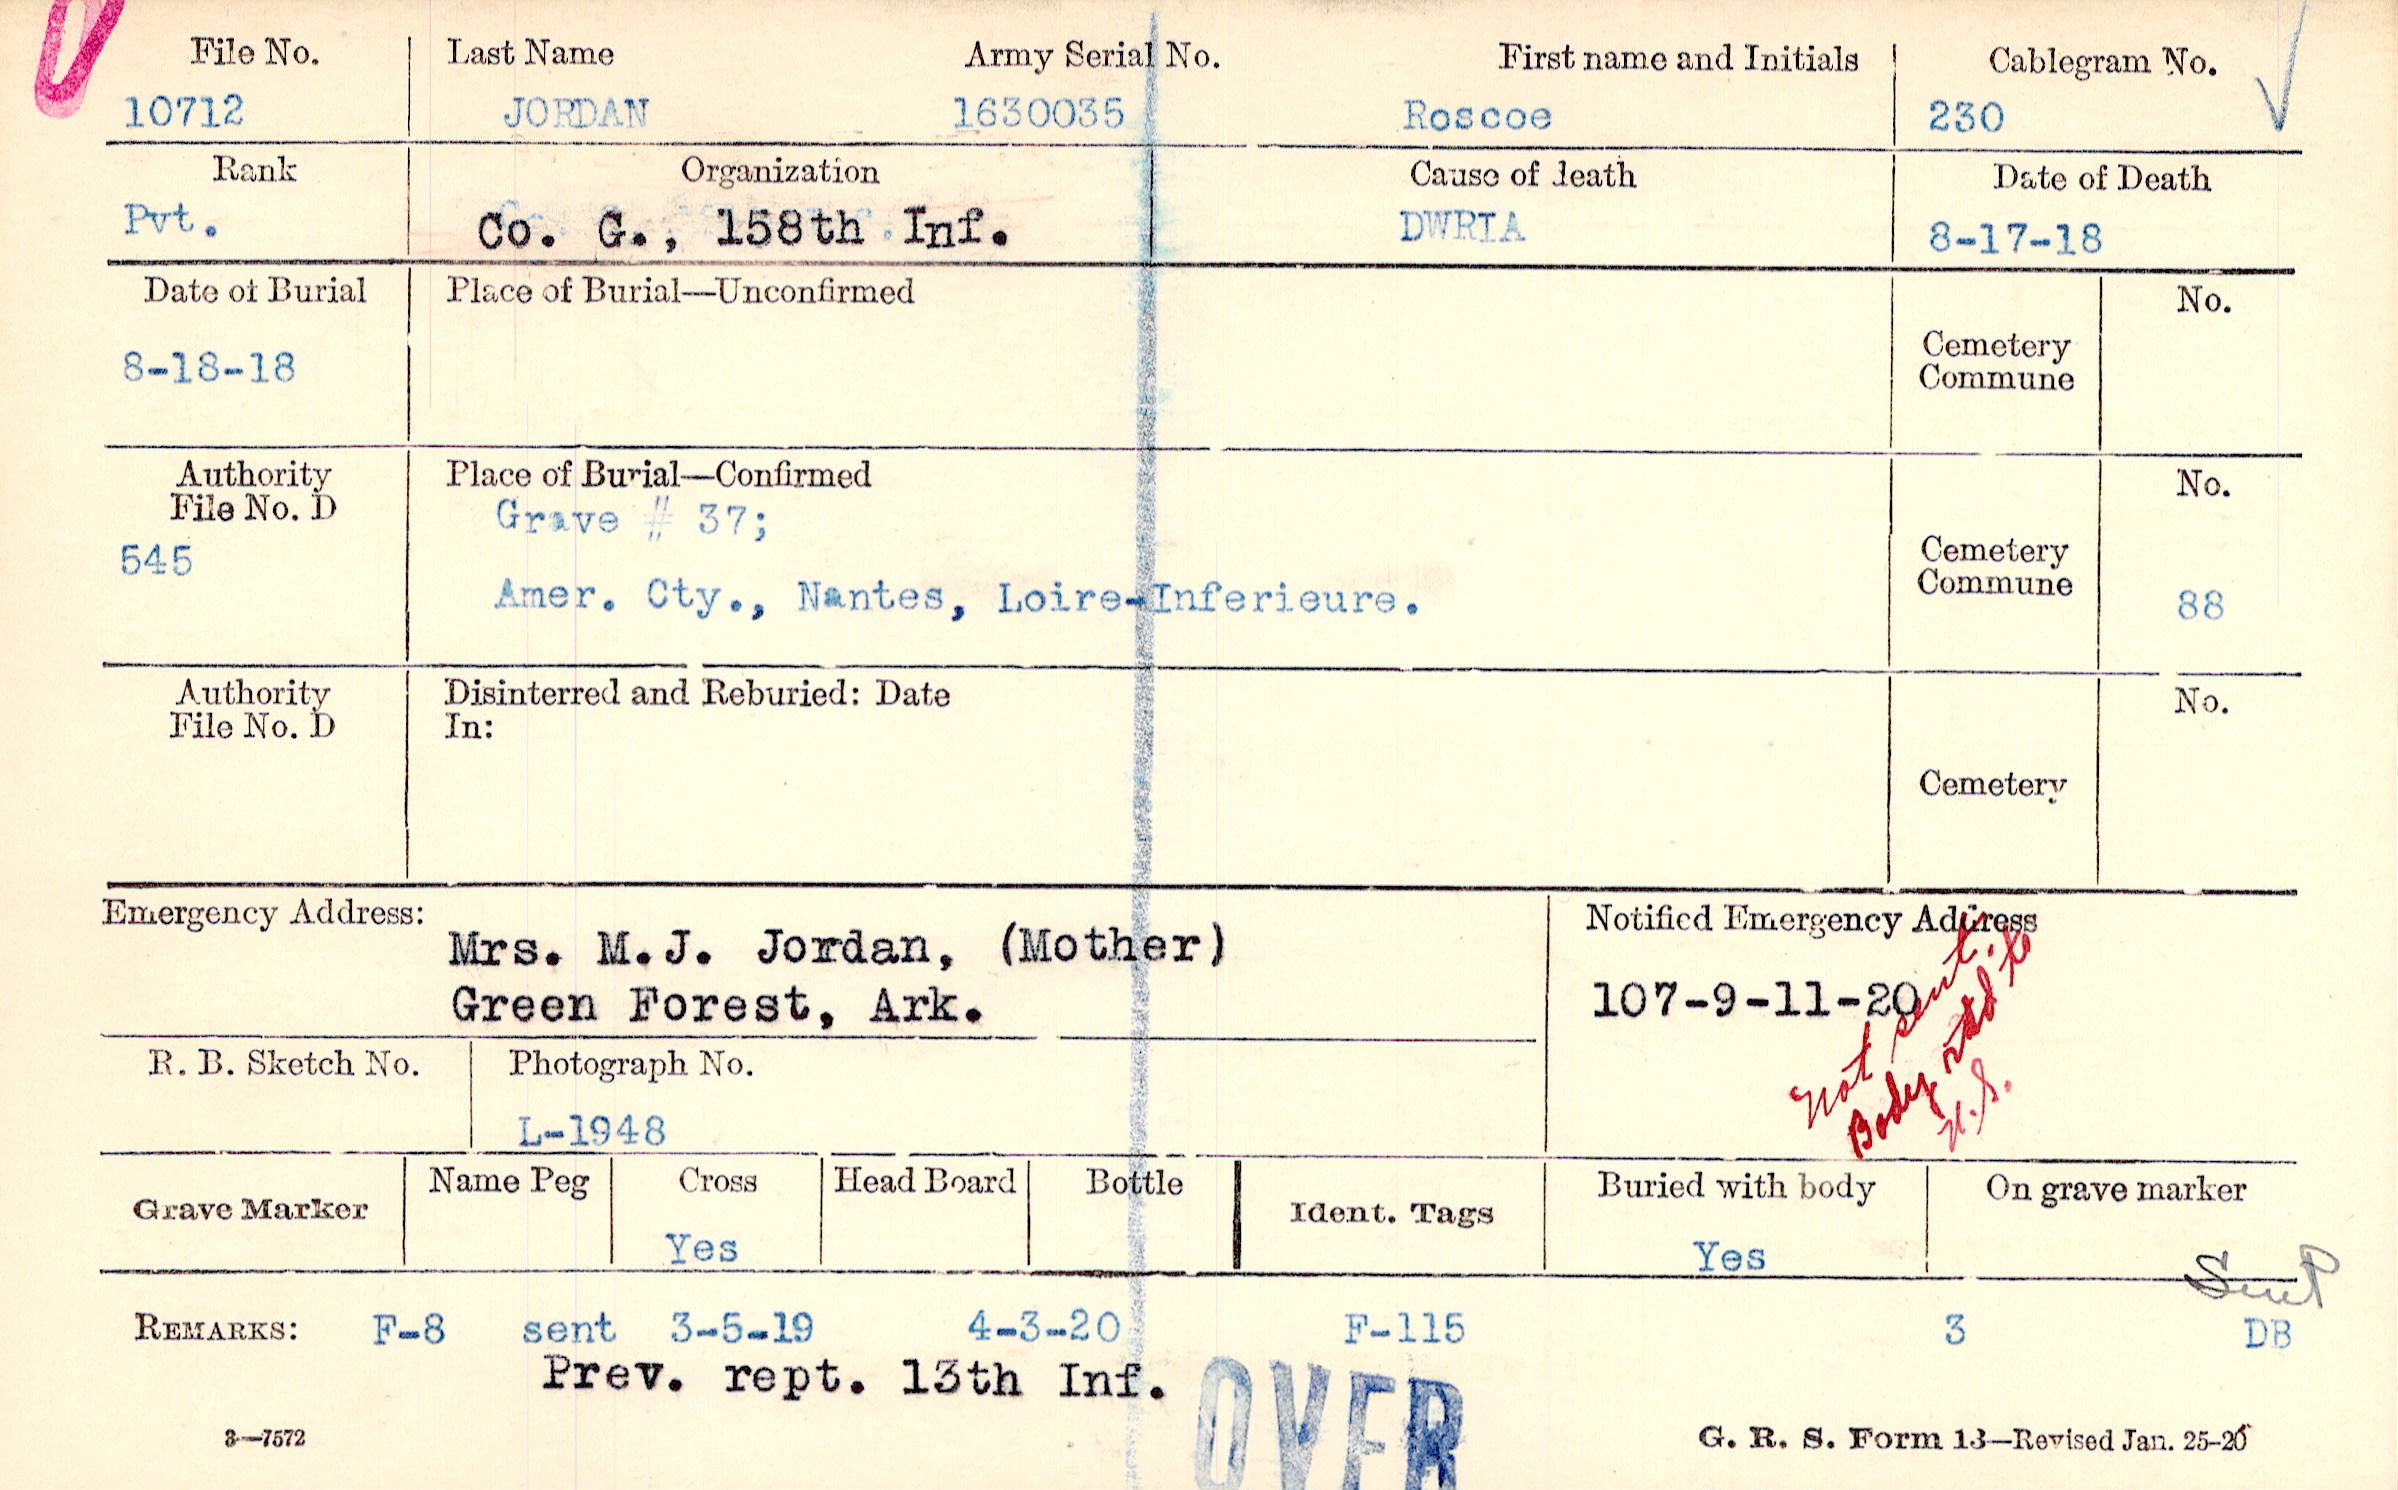 File No. Last Name Army Serial No. First name and Initials Cablegram No.
10712 JORDAN 1630035 Roscoe 230
Rank Organization Cause of death Date of Death
Pvt. Co. G., 158th Inf. DWRIA 8-17-18
Date of Burial Place of Burial—Unconfirmed No.
8-18-18 Cemetery
Commune
Authority Place of Burial—Confirmed No.
File No. D Grave # 37;
545 Cemetery
Commune
Amer. Cty., Nantes, Loire-Inferieure. 88
Authority Disinterred and Reburied: Date No.
File No. D In:
Cemetery
Emergency Address: Notified Emergency Address
Mrs. M.J. Jordan, (Mother)
Green Forest, Ark. 107-9-11-20
Not sent.
Body rtd to
U.S.
R. B. Sketch No. Photograph No.
L-1948
Grave Marker Name Peg Cross Head Board Bottle Ident. Tags Buried with body On grave marker
Yes Yes
Sent
REMARKS: F-8 sent 3-5-19 4-3-20 F-115 3 DB
Prev. rept. 13th Inf.
OVER
3—7572 G. R. S. Form 13—Revised Jan. 25-20